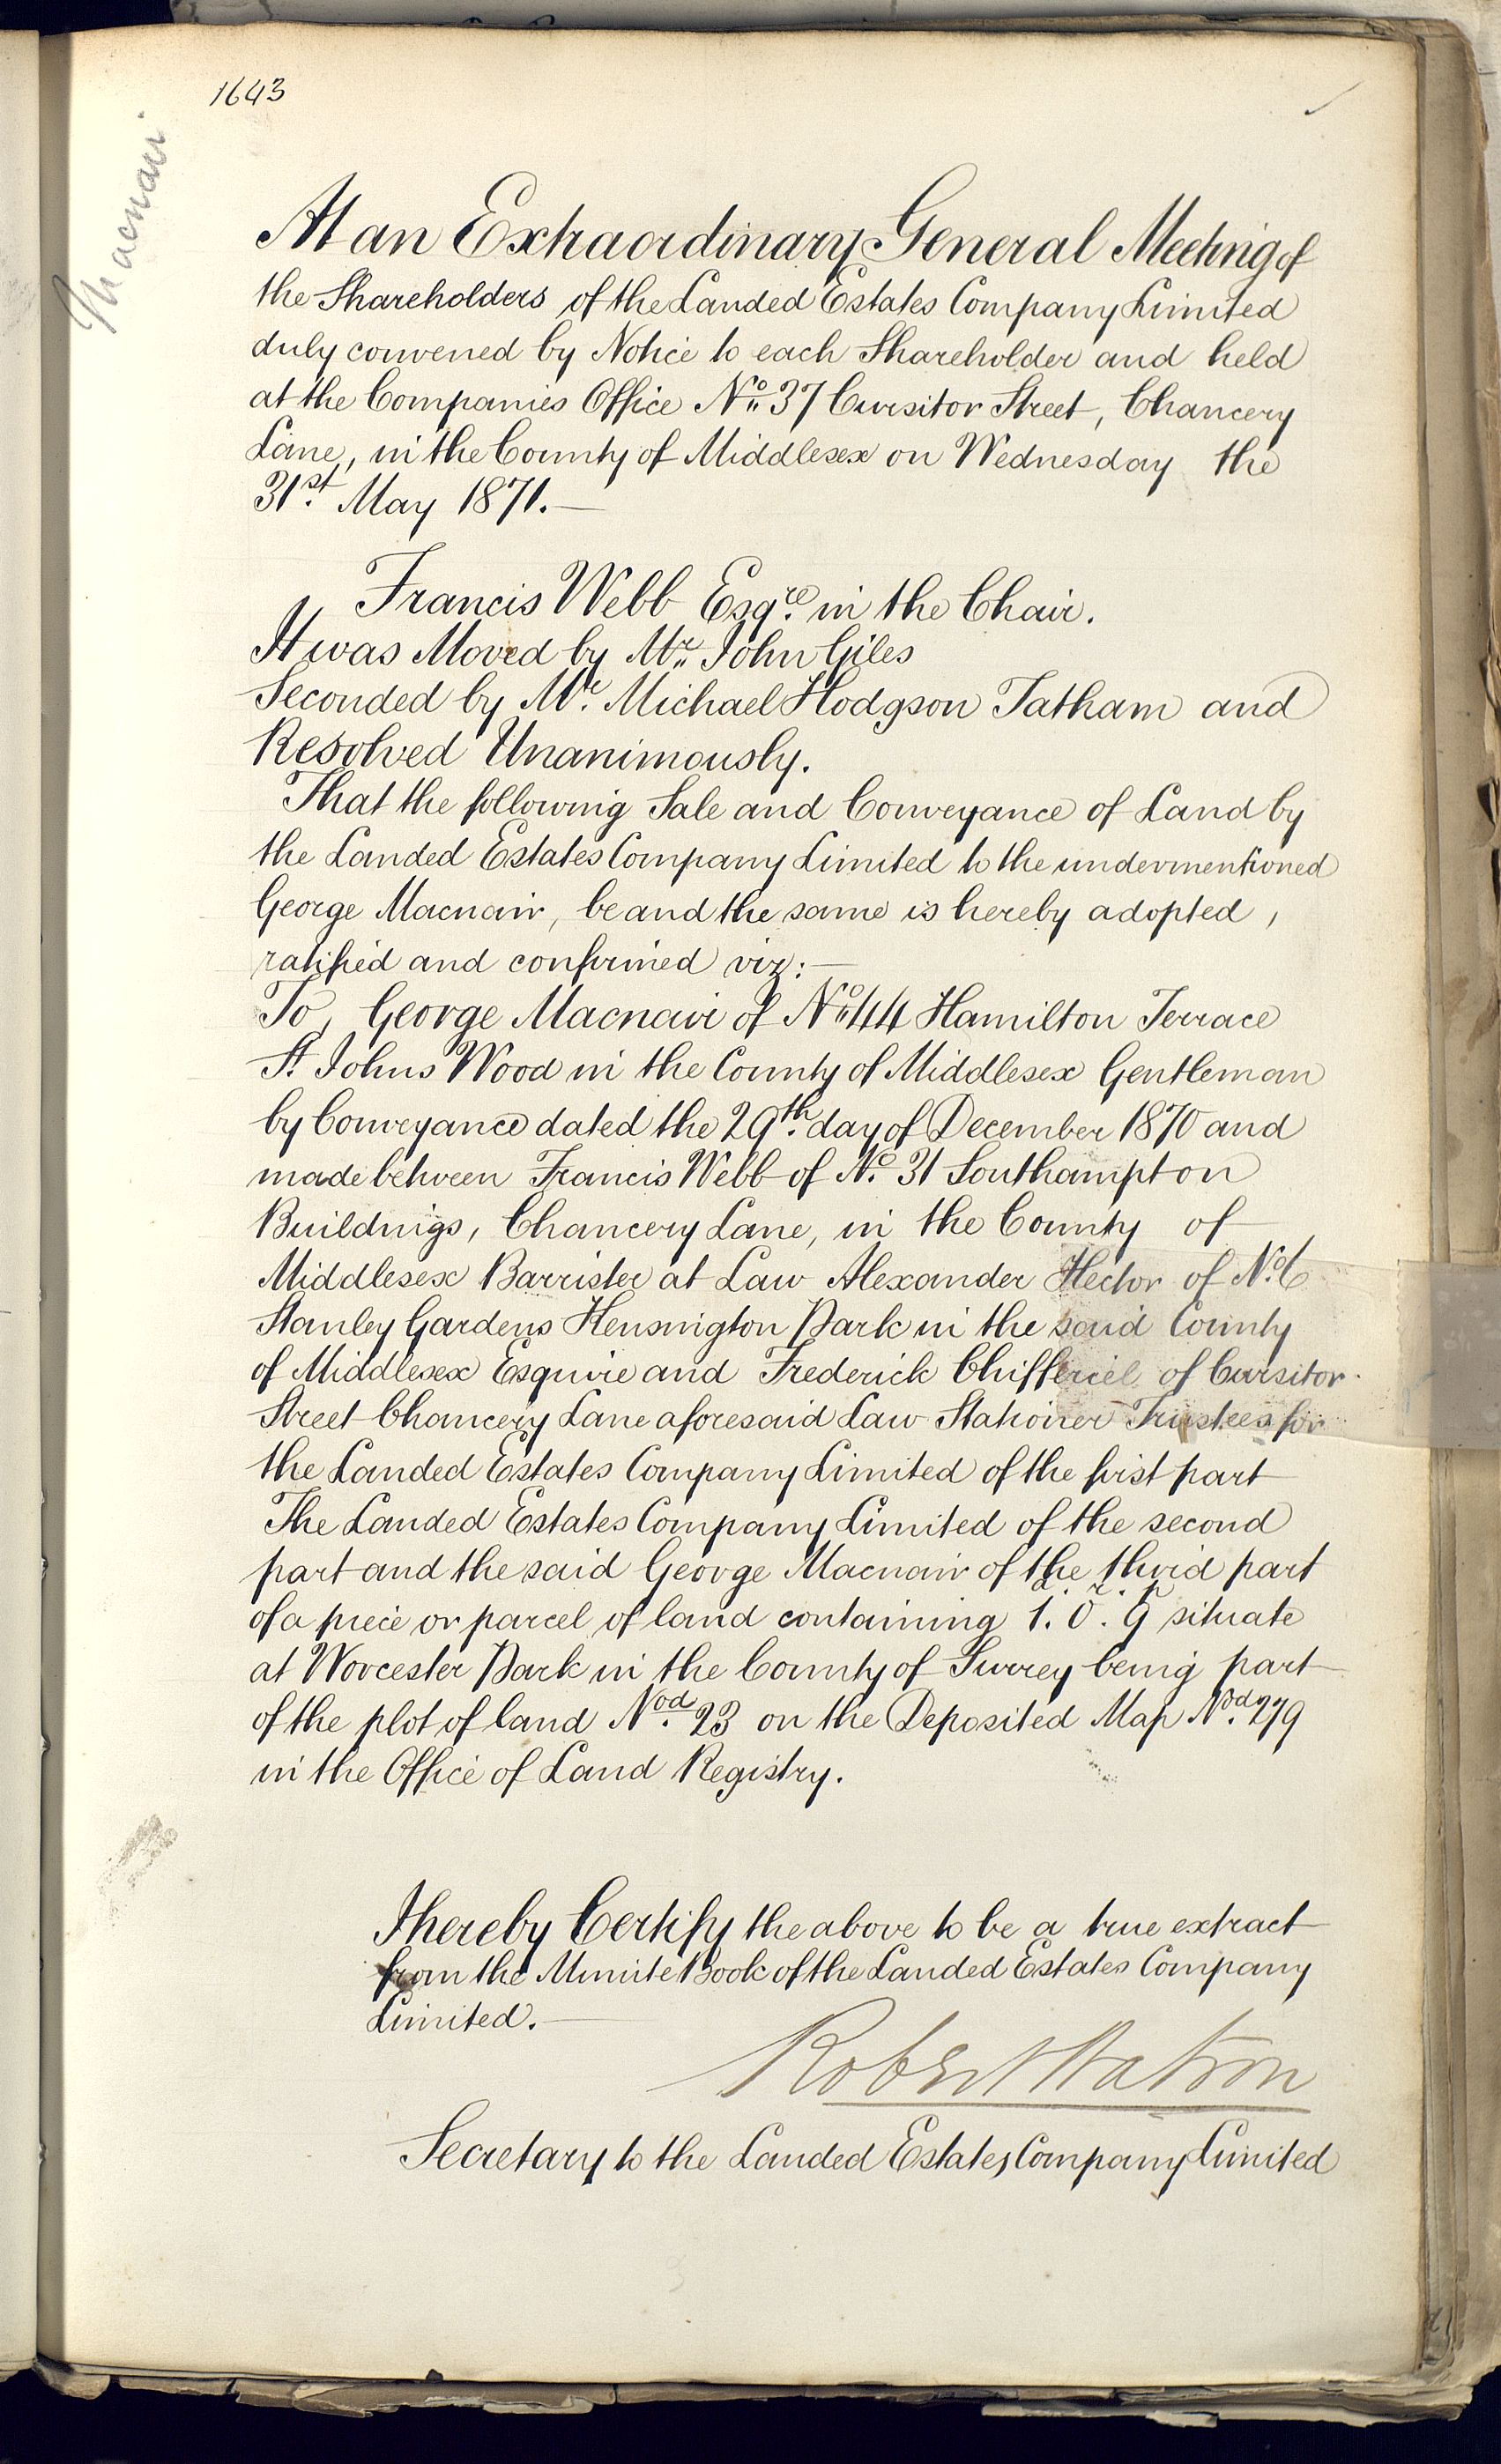 1643
Macnair
At an Extraordinary General Meeting of
the Shareholders of the Landed Estates Company Limited
duly convened by Notice to each Shareholder and held
at the Companies Office No. 37 Cursitor Street, Chancery
Lane, in the County of Middlesex on Wednesday the
31st. May 1871.—
Francis Webb Esqre. in the Chair.
It was Moved by Mr. John Giles
Seconded by Mr. Michael Hodgson Tatham and
Resolved Unanimously.
That the following Sale and Conveyance of Land by
the Landed Estates Company Limited to the undermentioned
George Macnair, be and the same is hereby adopted,
ratified and confirmed viz:—
To, George Macnair of No. 44 Hamilton Terrace
St. Johns Wood in the County of Middlesex Gentleman
by Conveyance dated the 29th. day of December 1870 and
made between Francis Webb of No. 31 Southampton
Buildings, Chancery Lane, in the County of
Middlesex Barrister at Law Alexander Hector of No. 6
Stanley Gardens Kensington Park in the said County
of Middlesex Esquire and Frederick Chifferiel of Cursitor
Street Chancery Lane aforesaid Law Stationer Trustees for
the Landed Estates Company Limited of the first part
The Landed Estates Company Limited of the second
part and the said George Macnair of the third part
of a piece or parcel of land containing 1a. 0r. 9p situate
at Worcester Park in the County of Surrey being part
of the plot of land Nod. 23 on the Deposited Map Nod. 279
in the Office of Land Registry.
I hereby Certify the above to be a true extract
from the Minute Book of the Landed Estates Company
Limited.—
Robert Watson
Secretary to the Landed Estates Company Limited